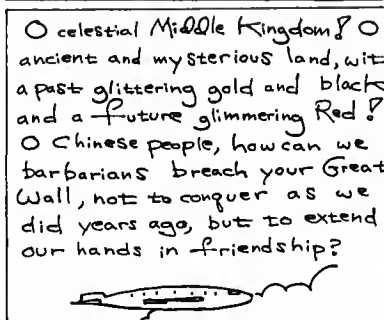 O celestial Middle Kingdom! O
ancient and mysterious land, wit
a past glittering gold and black
and a future glimmering Red!
O Chinese people, how can we
barbarians breach your Great
Wall, not to conquer as we
did years ago, but to extend
our hands in friendship?